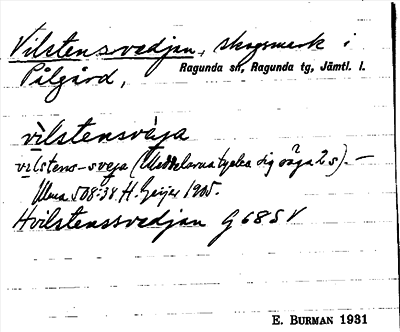 Vilstensvedjan, skogsmark i
Pålgård, Ragunda sn, Ragunda tg, Jämtl. l.
vìlstensvàja
vilstens-sveja (Meddelarna tycka sig säga 2 s). –
Ulma 508:38 H. Geijer 1905.
Hvilstenssvedjan G 68 S V
E. BURMAN 1931